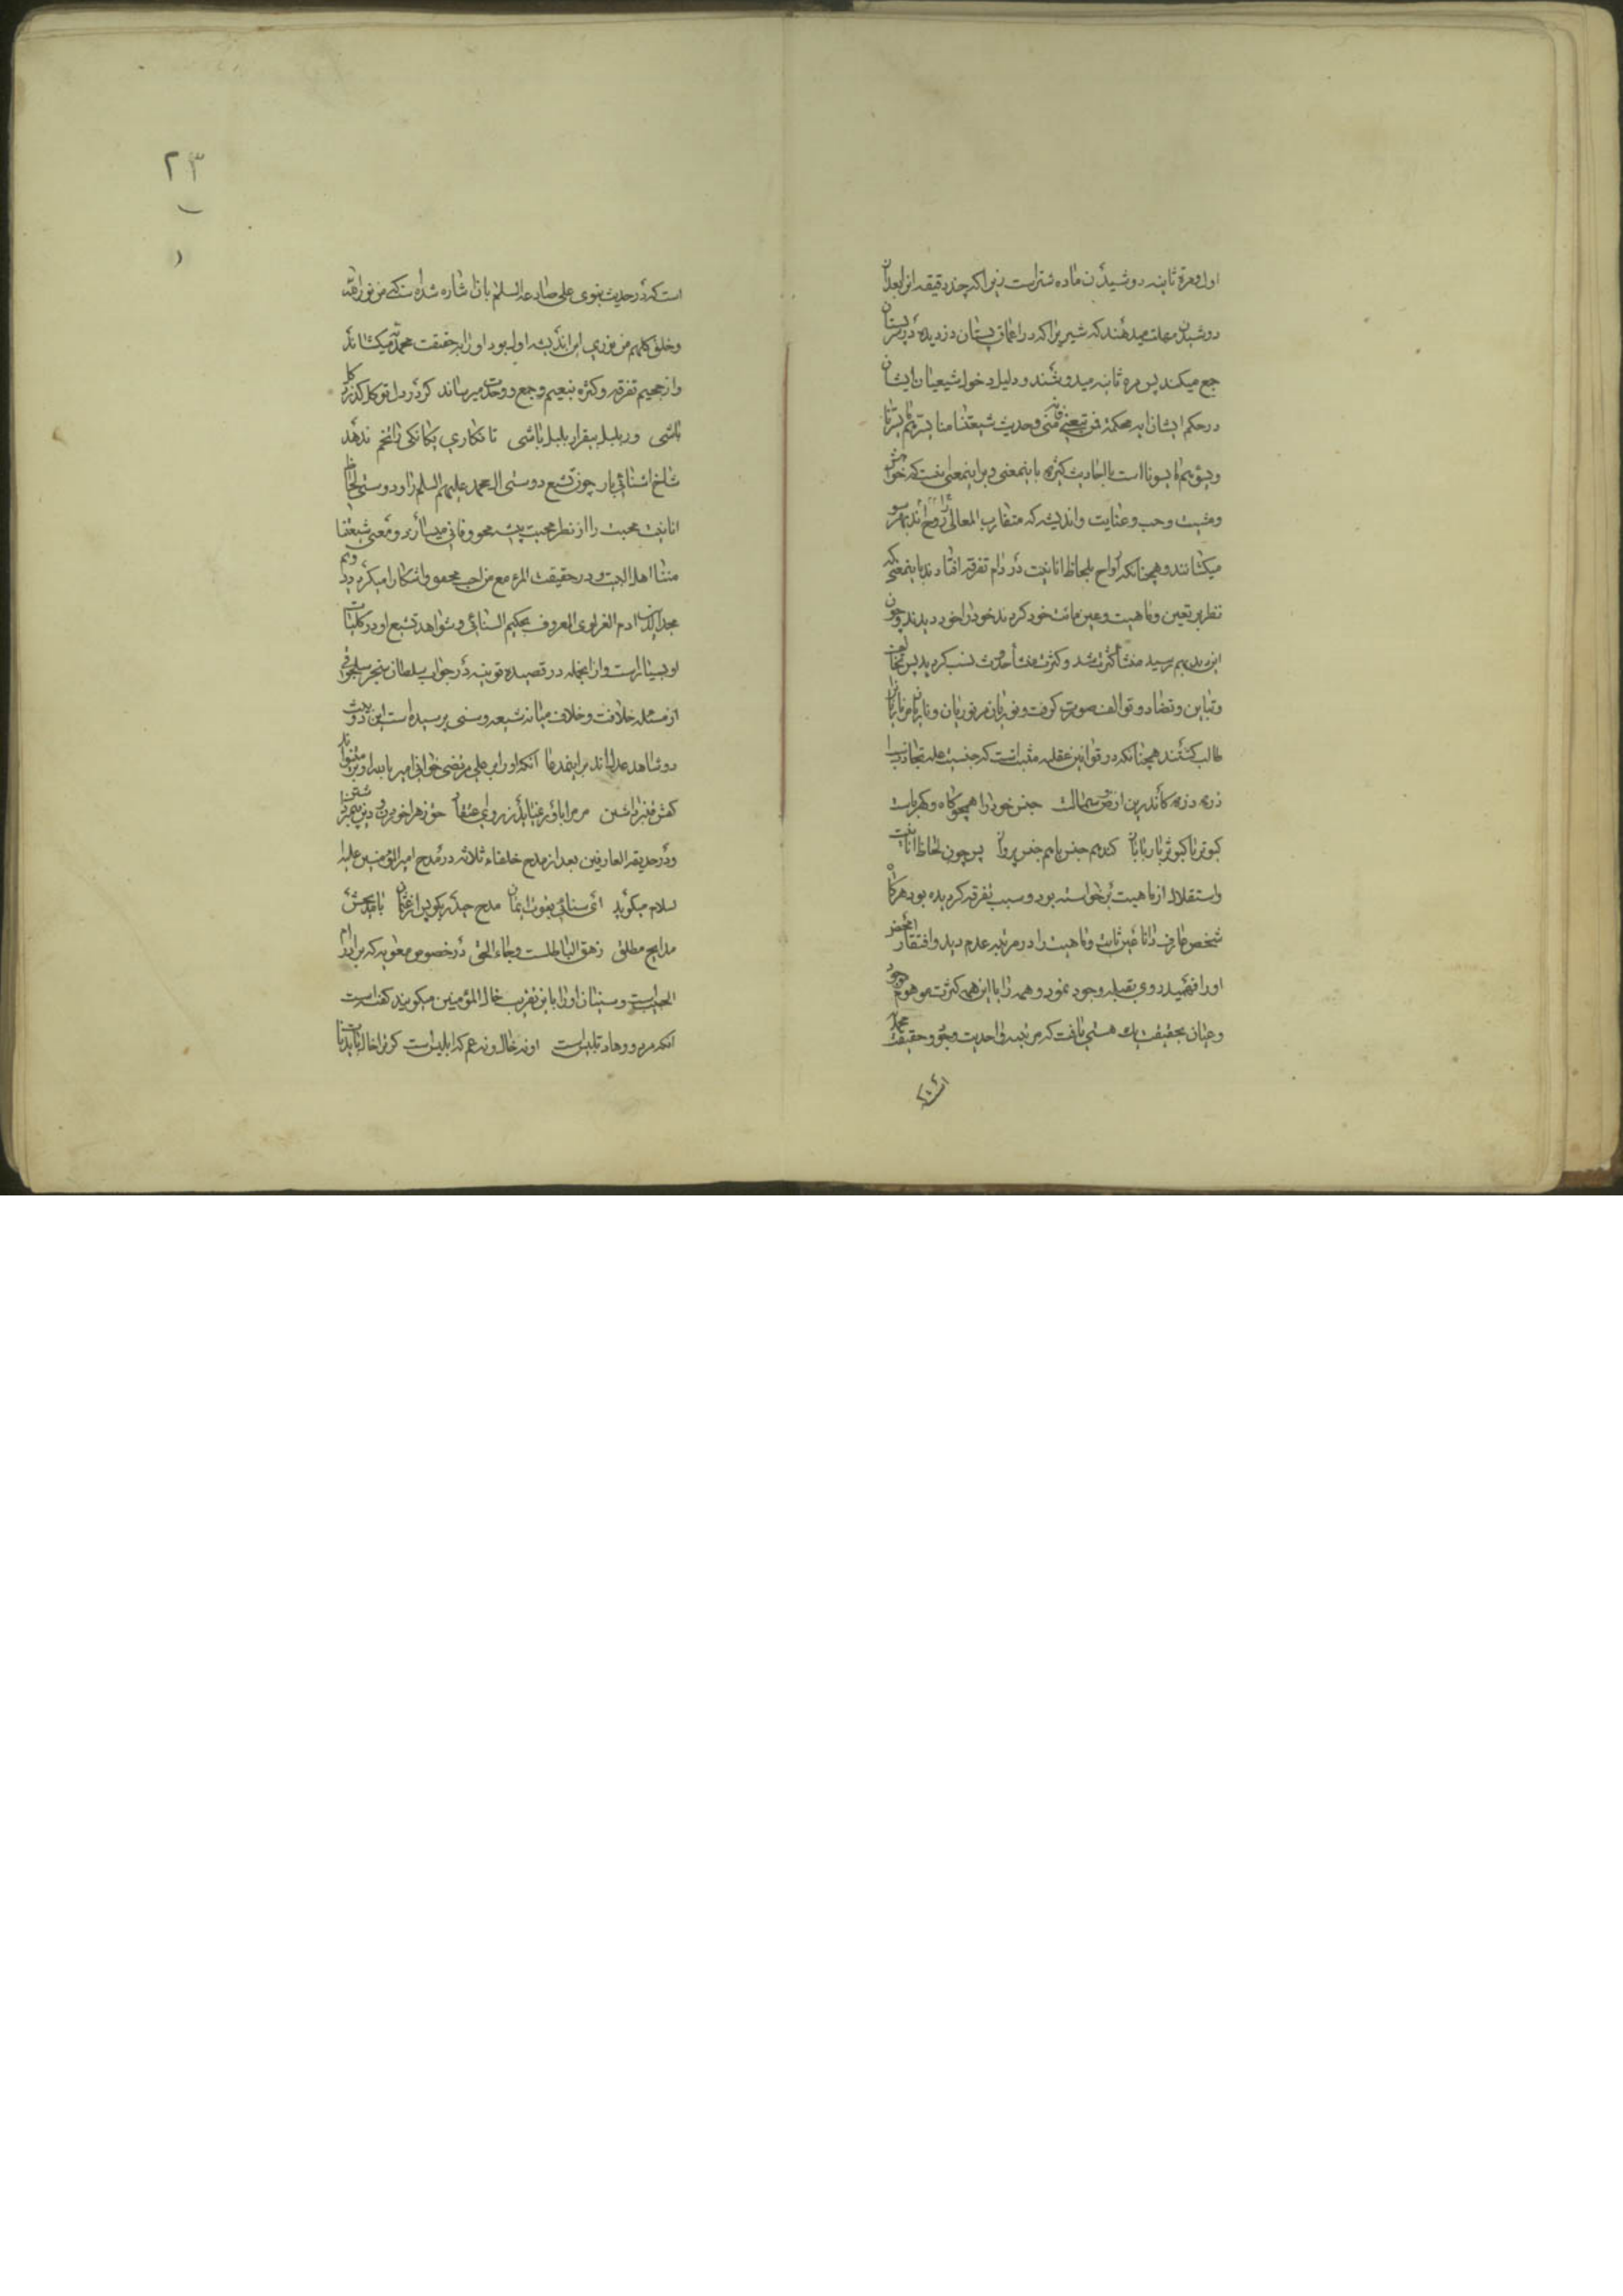 اول و مرة ثانیه دوشیدن ماده شتر است زیرا که چند دقیقه او را بعد از
دوشیدن مهلت میدهند که شیریرا که در اعماق پستان دزدیده در پستان
جمع میکند پس مره ثانیه میدوشند و دلیل دخول شیعیان ایشان
در حکم ایشان ایه محکمه فمن تبعنی فانه منی و حدیث شیعتنا منا یسرهم ما یسرنا
ویسؤهم ما یسونا است با احادیث کثیره باینمعنی و بر اینمعنی
ومشیت وحب و عنایت و اندیشه که متقارب المعانی
میکشانند و همچنانکه ارواح بلحاظ انانیت در دام تفرقه افتادند باینمعنی که
نظر بر تعین و ماهیت و عین ثابت خود کردند خود را خود دیدند و چون
این دید بهم رسید منشأ کثرت شد و کثرت منشأ حدوث نسب گردید پس تخالف
وتباین و تضاد و توالف صورت گرفت و نوریان مر نوریان و ناریان مر ناریانرا
طالب گشتند همچنانکه در قوانین عقلیه مثبتست که جنسیت علة تجاذبست
ذره ذره کاندرین ارض و سماست جنس خود را همچو کاه و کهرباست
کبوتر با کبوتر باز با باز کند هم جنس با هم جنس پرواز پس چون لحاظ انانیت
واستقلال از ماهیت برخواسته بود و سبب تفرقه گردیده بود هرگاه
شخص عارف دانا عین ثابت و ماهیت را در مرتبه عدم دید و افتقار محض
اورا فهمید روی بقبله وجود نمود و همه را با این همه کثرت موهوم
وعیان بحقیقت یک هستی یافت که مرتبه واحدیت وجود و حقیقت محمدیه
است
۲۳
است که در حدیث نبوی علی صادعه السلم بان اشاره شده است که من نور الله
وخلق کلهم من نوری این اندیشه اول بود او را بحقیقت محمدیه میکشاند
واز جحیم تفرقه و کثره بنعیم جمع و وحدت میرساند گر در دل تو گل گذرد گل
باشی ور بلبل بیقرار بلبل باشی تا نکاری یکانکی را تخم ندهد
شاخ اشنائی بار چون تشیع دوستی ال محمد علیهم السلم را و دوستی لحاظ
انانیت محبت را از نظر محبت پیشه محو و فانی میسازد و معنی شیعتنا
منا اهل البیت و در حقیقت المرء مع من احب محقق و اشکارا میگردد وهم
مجدالدین ادم الغزنوی المعروف بحکیم السنائی و شواهد تشیع او در کلیات
او بسیار است و از انجمله در قصیده نونیه در جواب سلطان سنجر سلجوقی
از مسئله خلافت و خلاف میانه شیعه و سنی پرسیده است این دو بیت
دو شاهد عدل اند بر اینمدعا انکه او را بر علی مرتضی خوانی امیر بالله ار بر میتواند
کفش قنبر داشتن مر مرا باور نمیاید ز روی اعتقاد حق زهرا خوردن و دین پیمبر داشتن
ودر حدیقه العارفین بعد از مدح خلفاء ثلاثه در مدح امیر المؤمنین علیه
السلام میگوید ای سنائی بقوت ایمان مدح حیدر بگو پس از عثمان با مدیحش
مدایح مطلق زهق الباطلست و جاء الحق در خصوص معویه که برادر ام
الحبیبه است و سنیان اورا باین تقریب خال المؤمنین میگویند گفته است
انکه مردود و تلبیس است او نه خال و نه عم که ابلیس است